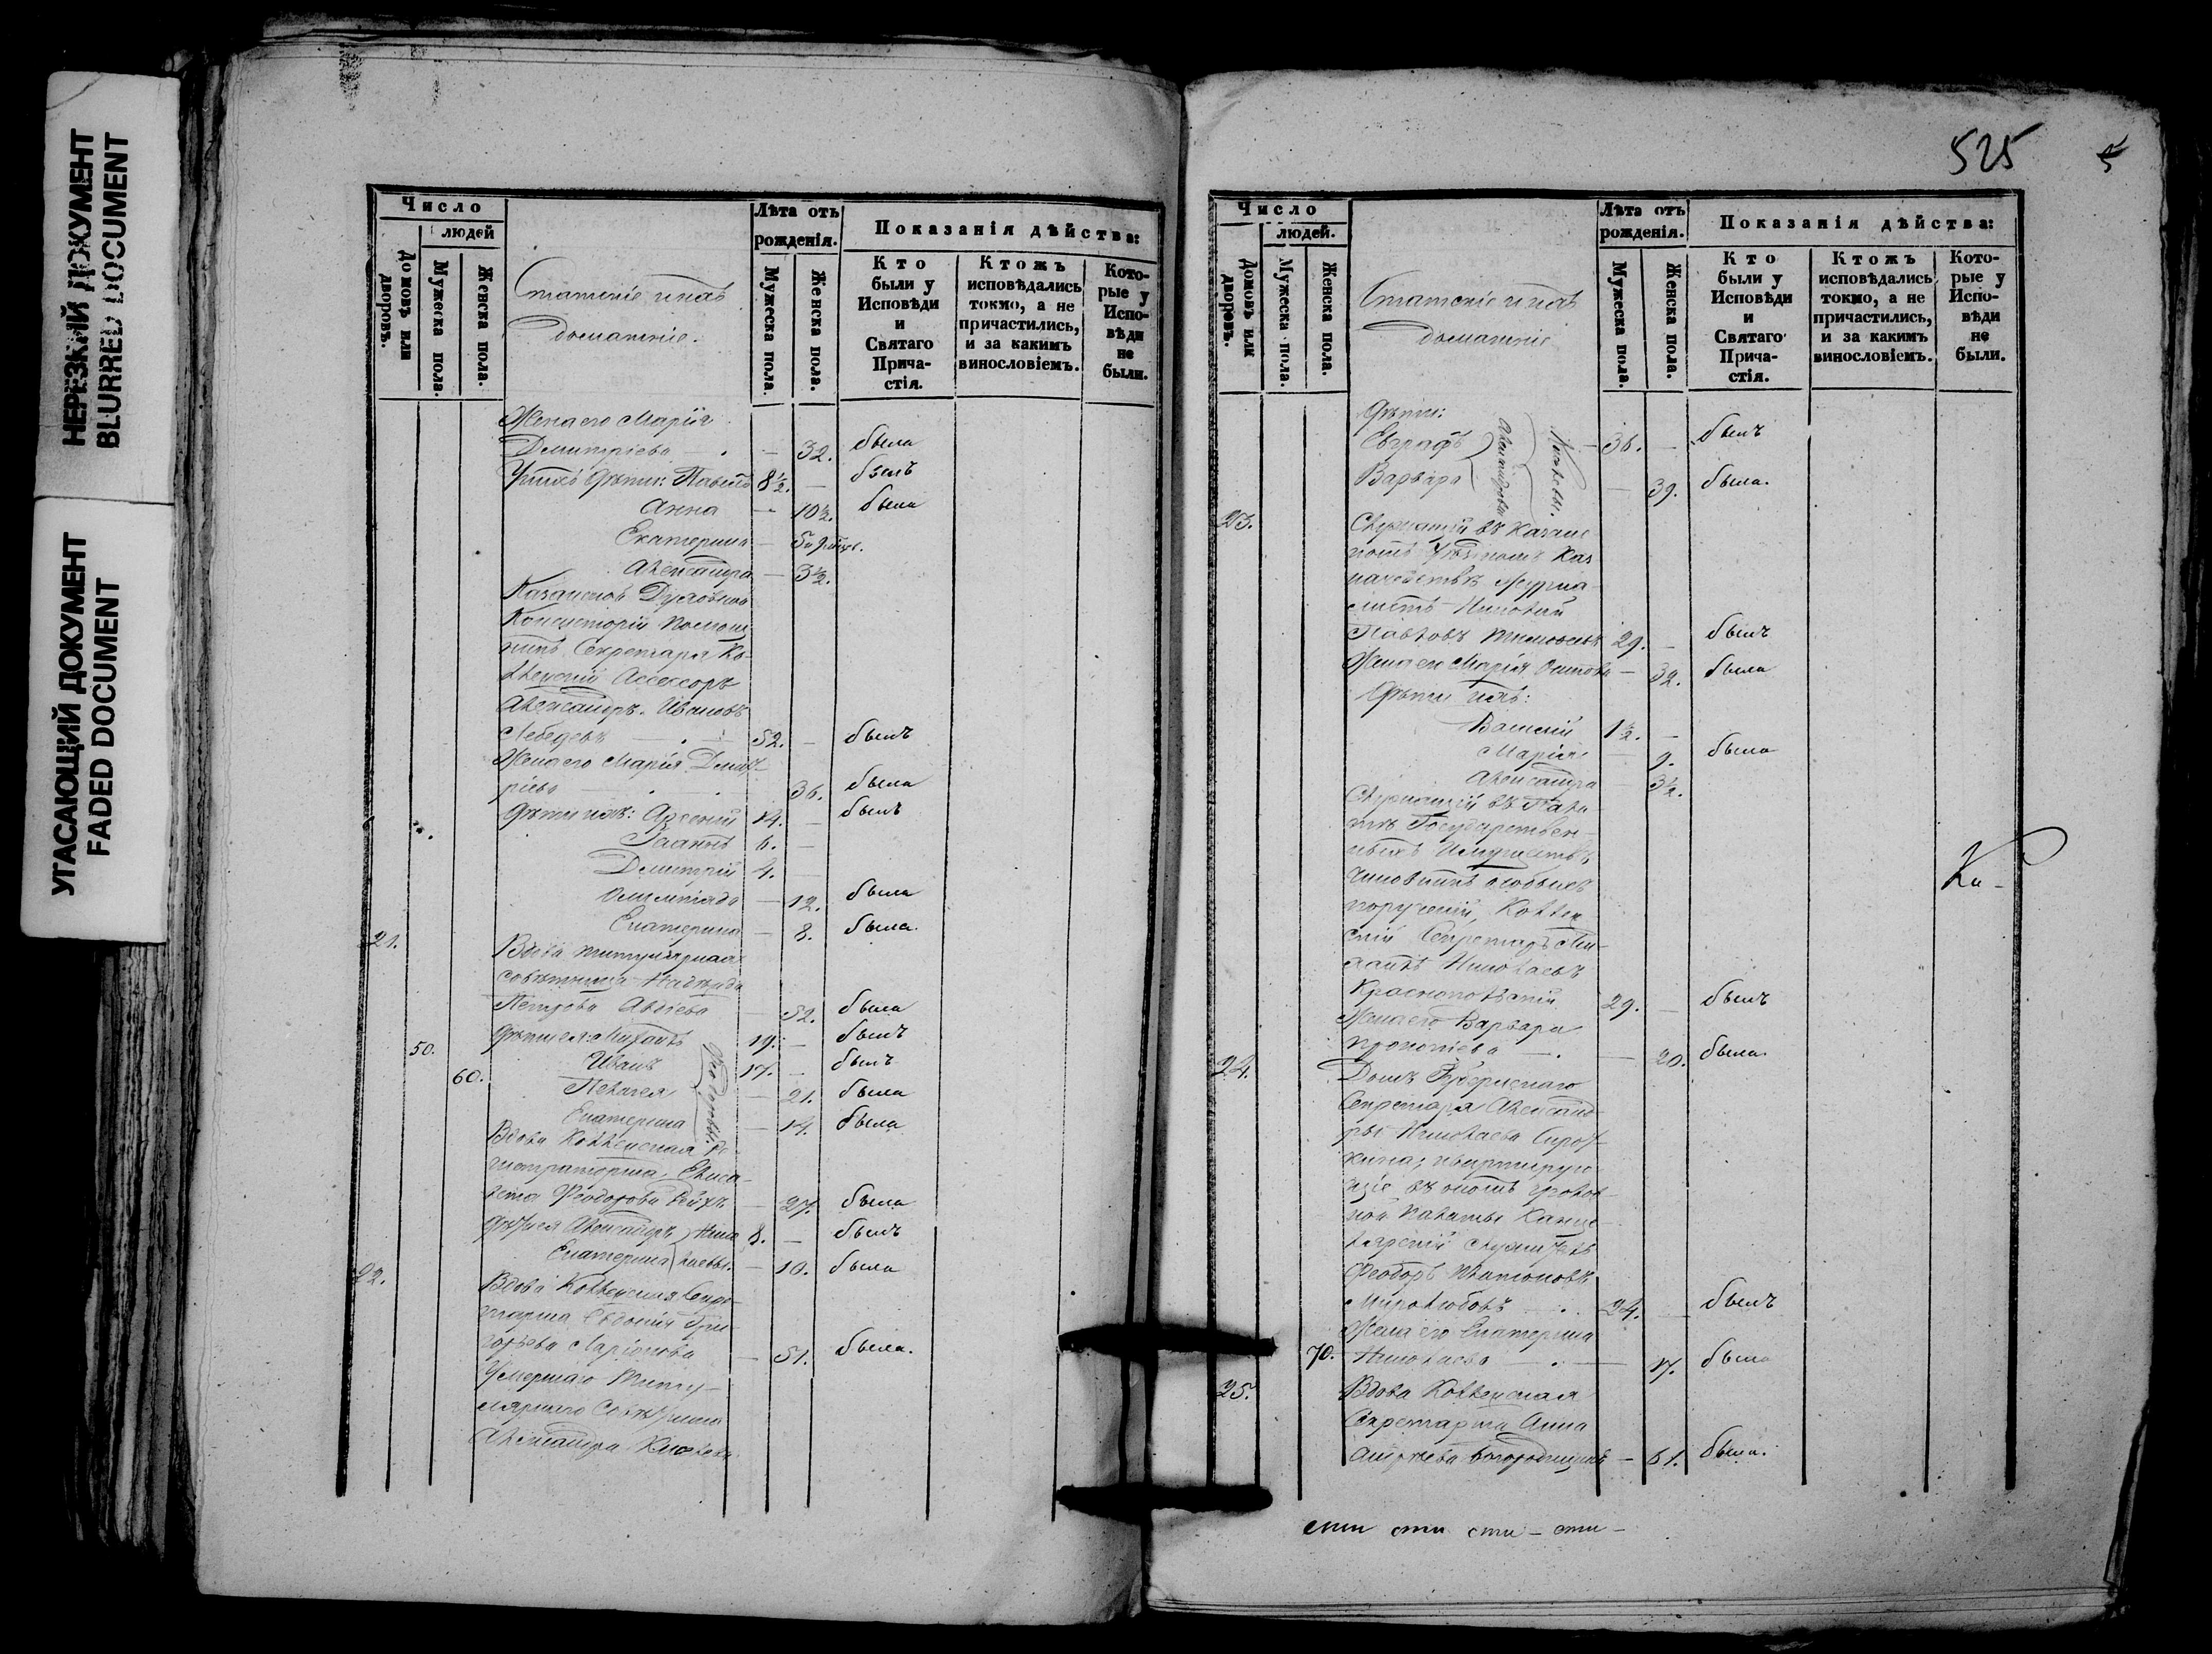 НЕРЕЗКИЙ ДОКУМЕНТ
BLURRED DOCUMENT
УГАСАЮЩИЙ ДОКУМЕНТ
FADED DOCUMENT
Число
людей
Домовъ или дворовъ.
Мужеска пола.
Женска пола.
Статскіе и ихъ
домашніе.
Лѣта отъ рожденія.
Мужеска пола.
Женска пола.
Показанія дѣйства:
Кто были у Исповѣди и Святаго Прича-стія.
Ктожъ исповѣдались токмо, а не причастились, и за какимъ винословіемъ.
Кото-рые у Испо-вѣди не были.
Жена его Марія
Димитріева — 32. была
У нихъ дѣти: Павелъ 8½. — былъ
Анна — 10½. была
Екатерина —
Александра — 3½.
Казанской Духовной
Консисторіи
Секретаря Ко-
Ассессоръ
Александръ Ивановъ
Лебедевъ 52. — былъ
Жена его Марія Димит-
ріева 36. была
Дѣти ихъ: Арсеній 14. — былъ
Іоаннъ 6. —
Димитрій 4. —
Олимпіада — 12. была
Екатерина — 8. была.
21. Вдова титулярная
совѣтница Надежда
Петрова — 52. была
Дѣти ея: Михаилъ 19. — былъ
50. Иванъ 17. — былъ
60. Пелагея — 21. была
Екатерина — 14. была
Вдова Коллежская Ре-
гистраторша Елиса-
вета Феодорова — 27. была
Дѣти ея Александръ 8. — былъ
Екатерина — 10. была
22. Вдова Коллежская Секре-
тарша Евдокія Гри-
горьева Ларіонова — 51. была.
Умершаго Титу-
лярнаго Совѣтника
Александра
525
Число
людей.
Домовъ или дворовъ.
Мужеска пола.
Женска пола.
Статскіе и ихъ
домашніе
Лѣта отъ рожденія.
Мужеска пола.
Женска пола.
Показанія дѣйства:
Кто были у Исповѣди и Святаго Прича-стія.
Ктожъ исповѣдались токмо, а не причастились, и за какимъ винословіемъ.
Кото-рые у Испо-вѣди не были.
Дѣти:
Евграфъ 36. — былъ
Варвара — 39. была.
Александровы
23. Служащій въ Казан-
скомъ Уѣздномъ Каз-
начействѣ Журна-
листъ Николай
Павловъ 29. — былъ
Жена его Марія — 32. была
Дѣти ихъ:
Василій 1½. —
Марія 9. была
Александра — 3½.
Служащій въ Пала-
тѣ Государствен-
ныхъ Имуществъ
Чиновникъ особыхъ
порученій, Коллеж-
скій Секретарь Ми-
хаилъ Николаевъ
29. — былъ
Жена его Варвара
Прокопіева — 20. была.
24. Домъ Губернскаго
Секретаря Александ-
ры Николаева
квартирую-
щіе въ ономъ
Палаты Канце-
лярскій служитель
Феодоръ Платоновъ
Миролюбовъ 24. — былъ
Жена его Екатерина
70. Николаева — 17. была
25. Вдова Коллежская
Секретарша Анна
Андреева Богородицкая — 61. была.
Ка-
сти сти сти - сти -